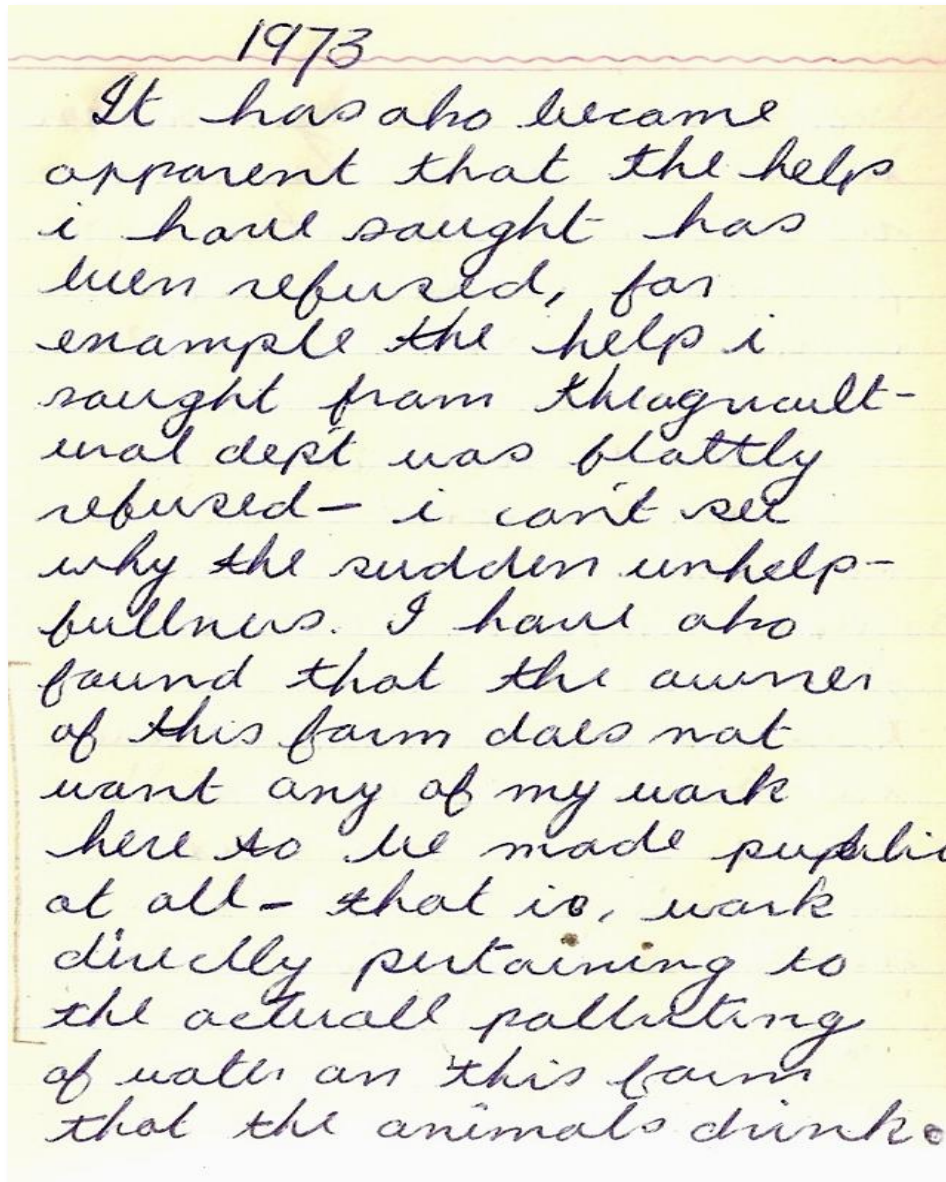 1973
It has also become
apparent that the help
i have sought has
been refused, for
example the help i
sought from the agricult-
ural dept was flattly
refused- i can't see
why the sudden unhelp-
fullness. I have also
found that the owner
of this farm does not
want any of my work
here to be made public
at all- that is, work
directly pertaining to
the actuall polluting
of water on this farm
that the animals drink.